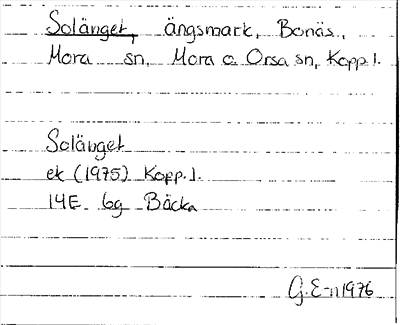 Solänget, ängsmark, Bonäs,
Mora sn, Mora o. Orsa sn, Kopp.l.
Solänget
ek (1975) Kopp.l.
14E 6g Bäcka
G.E-n 1976